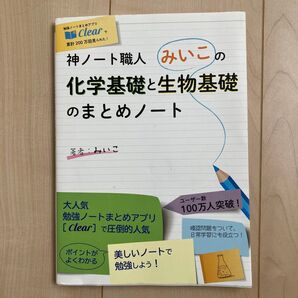 勉強ノートまとめアプリ
Clearで
累計200万回見られた!
神ノート職人 みいこの
化学基礎と生物基礎
のまとめノート
著者:みいこ
ユーザー数
100万人突破!
大人気
勉強ノートまとめアプリ
[Clear]で圧倒的人気
確認問題もついて、
日常学習にも役立つ!
ポイントが
よくわかる
美しいノートで
勉強しよう!